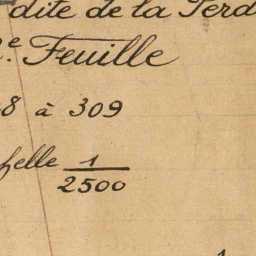 dite de la Perd
e. Feuille
8 à 309
helle 1/2500